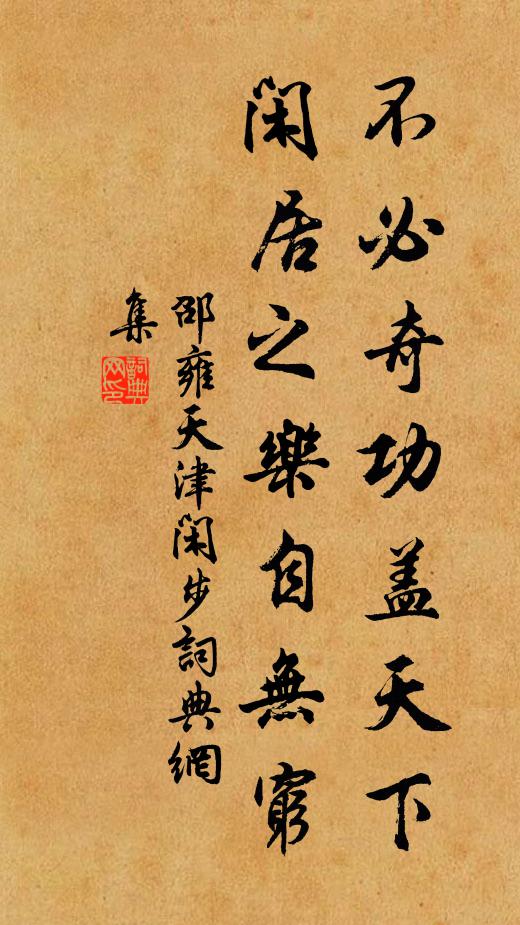 不必奇功盖天下
閑居之樂自無窮
邵雍天津閑步詞典網
集
詞典
网印